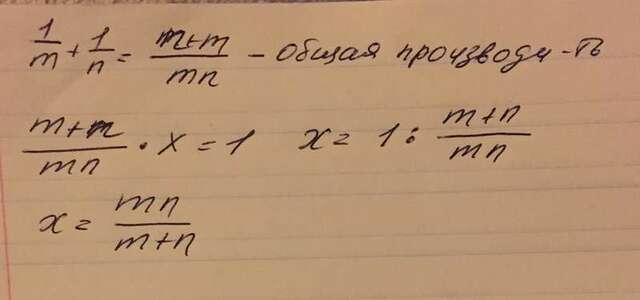 1/m + 1/n = m+m/mn – общая производи-ть
m+n/mn · x = 1 x = 1 : m+n/mn
x = mn/m+n